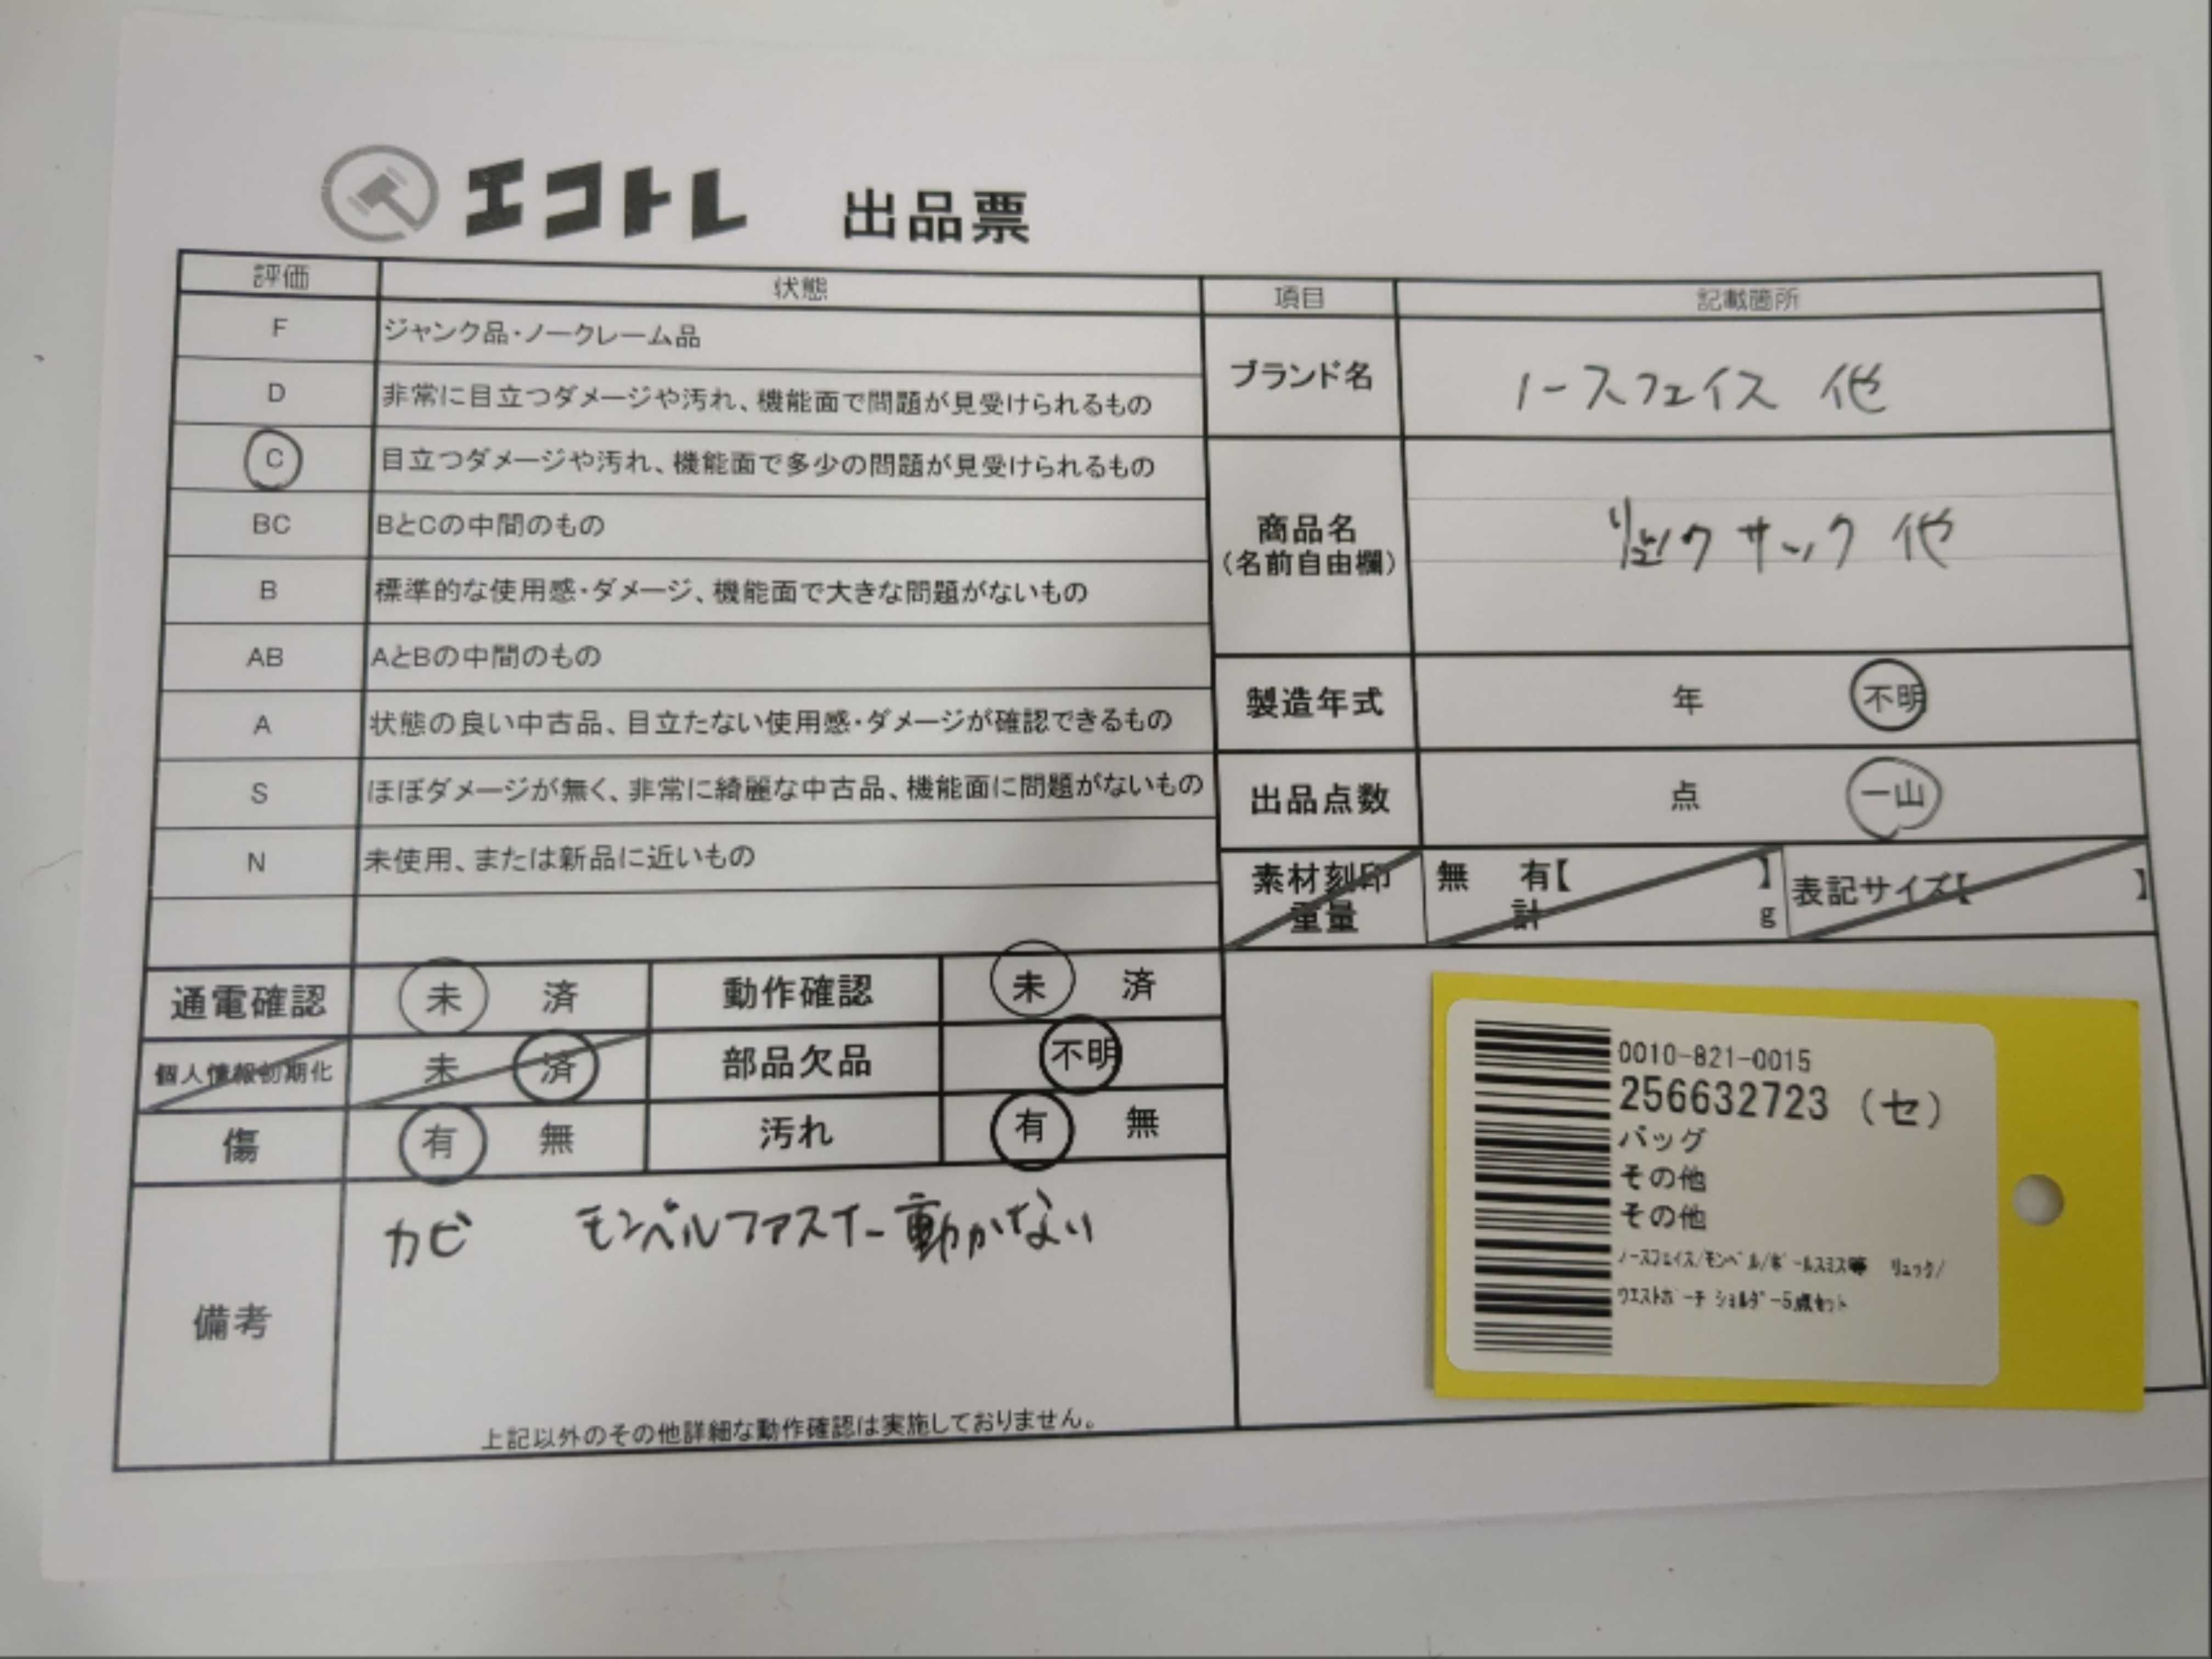 エコトレ 出品票
評価 状態
F ジャンク品・ノークレーム品
D 非常に目立つダメージや汚れ、機能面で問題が見受けられるもの
C 目立つダメージや汚れ、機能面で多少の問題が見受けられるもの
BC BとCの中間のもの
B 標準的な使用感・ダメージ、機能面で大きな問題がないもの
AB AとBの中間のもの
A 状態の良い中古品、目立たない使用感・ダメージが確認できるもの
S ほぼダメージが無く、非常に綺麗な中古品、機能面に問題がないもの
N 未使用、または新品に近いもの
項目 記載箇所
ブランド名 ノースフェイス 他
商品名
(名前自由欄)
リュックサック 他
製造年式 年 不明
出品点数 点 一山
素材刻印 無 有【 】 表記サイズ【 】
重量 計 g
通電確認 未 済 動作確認 未 済
個人情報初期化 未 済 部品欠品 不明
傷 有 無 汚れ 有 無
備考
カビ モンベルファスナー動かない
上記以外のその他詳細な動作確認は実施しておりません。
0010-821-0015
256632723 (セ)
バッグ
その他
その他
ノースフェイス/モンベル/ポールスミス等 リュック/
ウエストポーチ ショルダー5点セット